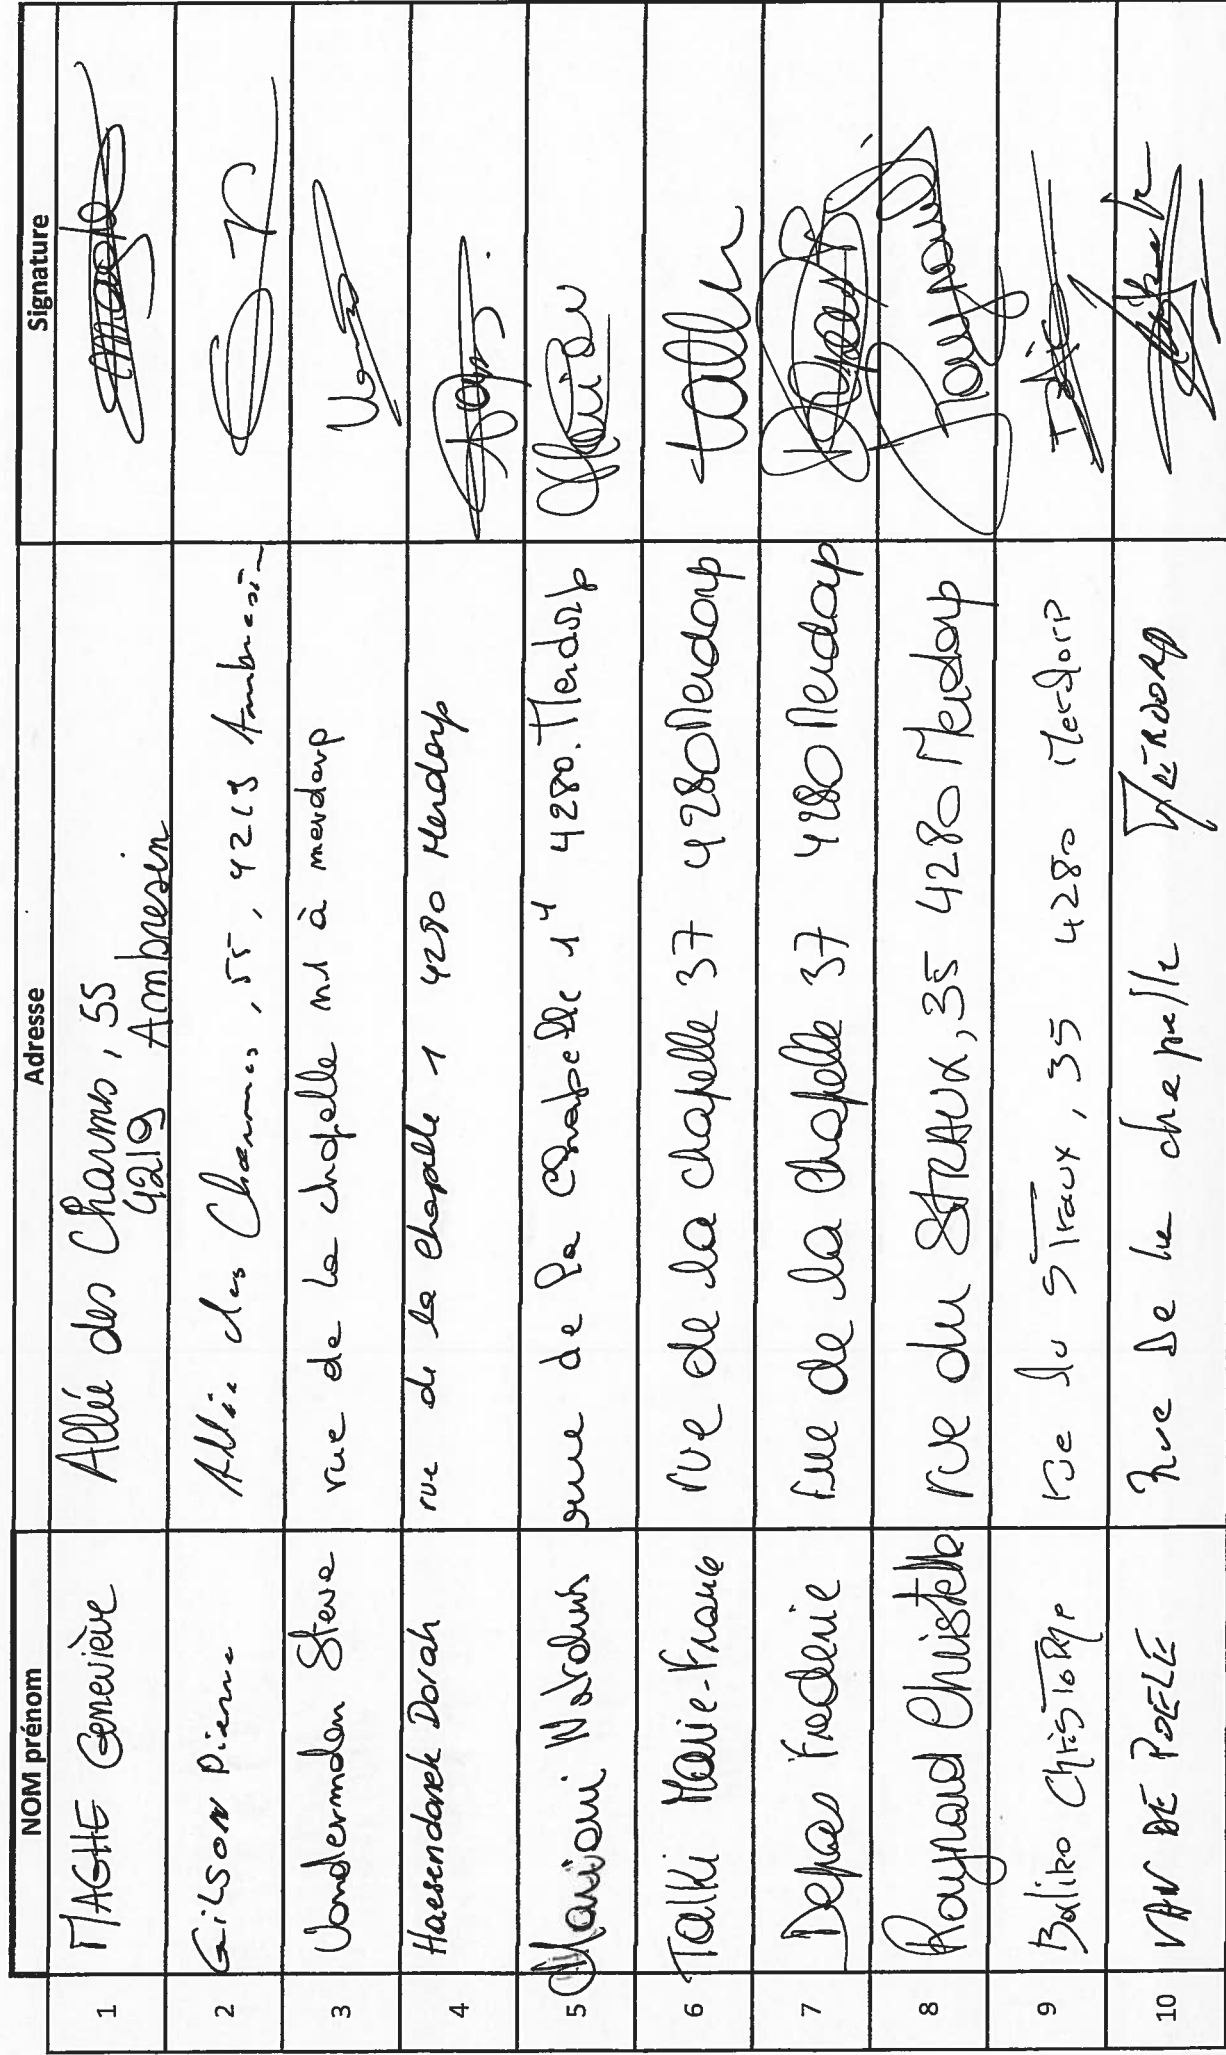 NOM prénom Adresse Signature
1 MAGHE Geneviève Allée des Charmes, 55
4219 Ambresin
2 GILSON Pierre Allée des Charmes, 55, 4219 Ambresin
3 Vandermolen Steve rue de la chapelle n1 à merdorp
4 Haesendonck Dorah rue de la chapelle 1 4280 Merdorp
5 rue de la Chapelle 1 4280 Merdorp
6 Talki Marie-France rue de la chapelle 37 4280 Merdorp talki
7 Depas Frederic rue de la Chapelle 37 4280 Merdorp
8 Raynard Christelle rue du STRAUX, 35 4280 Merdorp
9 Baliko Christophe rue du STraux, 35 4280 Merdorp
10 VAN DE POELE Rue De la chapelle MERDORP